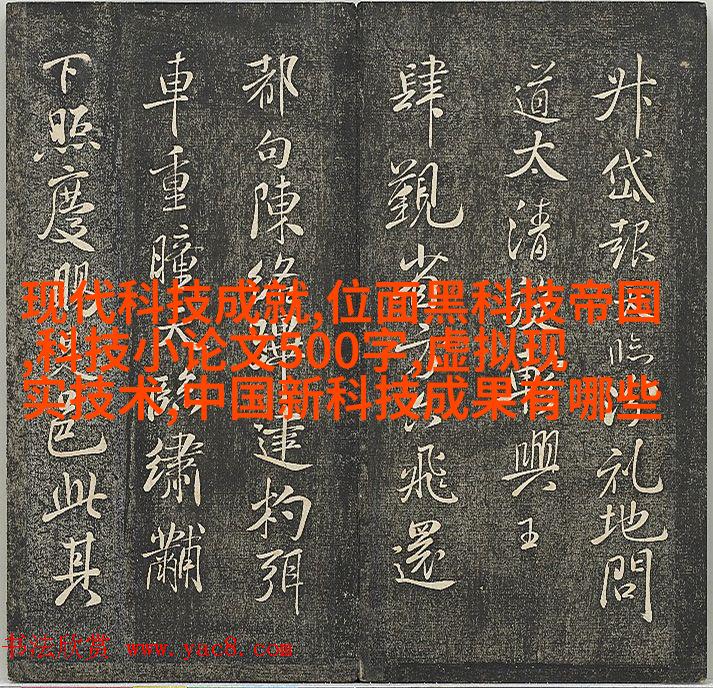 岱報臨礼地問
道太清興王
肆覲省方飛還
都句陳絡杓弭
車重瞳天繡黼
下照慶色此其
现代科技成就,位面黑科技帝国
,科技小论文500字,虚拟现
实技术,中国新科技成果有哪些
书法欣赏 www.yac8.com